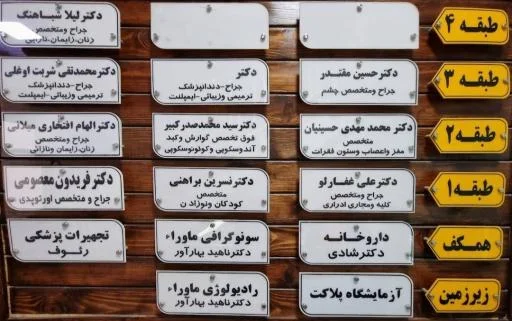 طبقه ۴
دکتر لیلا شباهنگ
جراح و متخصص
زنان-زایمان-نازایی
طبقه ۳
دکتر حسین مقتدر
جراح ومتخصص چشم
دکتر
جراح-دندانپزشک
ترمیمی وزیبائی-ایمپلنت
دکتر محمدتقی شربت اوغلی
جراح-دندانپزشک
ترمیمی وزیبائی-ایمپلنت
طبقه ۲
دکتر محمد مهدی حسینیان
متخصص
مغز واعصاب وستون فقرات
دکتر سید محمدصدرکبیر
فوق تخصص گوارش وکبد
آندوسکوپی وکولونوسکوپی
دکتر الهام افتخاری میلانی
جراح ومتخصص
زنان زایمان ونازائی
طبقه ۱
دکتر علی غفارلو
جراح ومتخصص
کلیه ومجاری ادراری
دکتر نسرین براهنی
متخصص
کودکان ونوزادان
دکتر فریدون معصومی
جراح و متخصص اورتوپدی
همکف
داروخانه
دکتر شادی
سونوگرافی ماوراء
دکتر ناهید بهارآور
تجهیزات پزشکی
رئوف
زیرزمین
آزمایشگاه پلاکت
رادیولوژی ماوراء
دکتر ناهید بهارآور